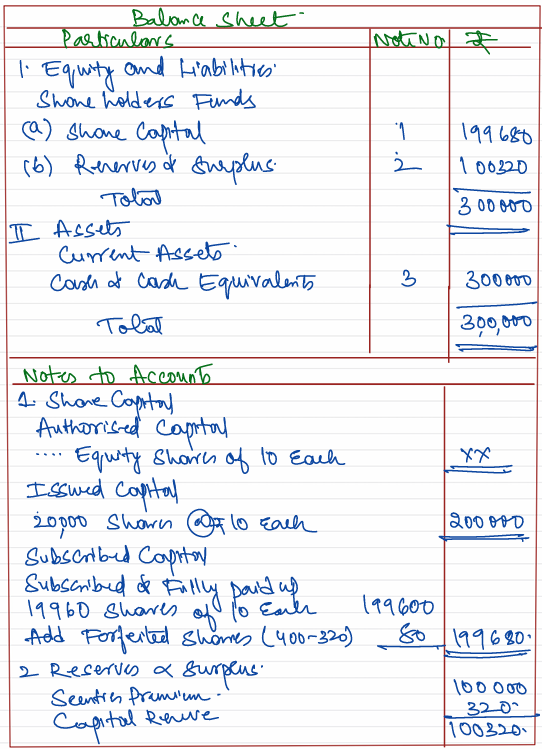 Balance Sheet
Particulars Note No ₹
1. Equity and Liabilities.
Share holders Funds
(a) Share Capital 1 199680
(b) Reserves & Surplus. 2 100320
Total 300000
II Assets
Current Assets.
Cash & Cash Equivalents 3 300000
Total 300,000
Notes to Accounts
1. Share Capital
Authorised Capital
.... Equity Shares of 10 Each xx
Issued Capital
20,000 Shares @ ₹10 Each 200000
Subscribed Capital
Subscribed & Fully paid up
19960 Shares of 10 Each 199600
Add Forfeited Shares (400-320) 80 199680.
2 Reserves & Surplus.
Securities Premium. 100 000
Capital Reserve 320.
100320.